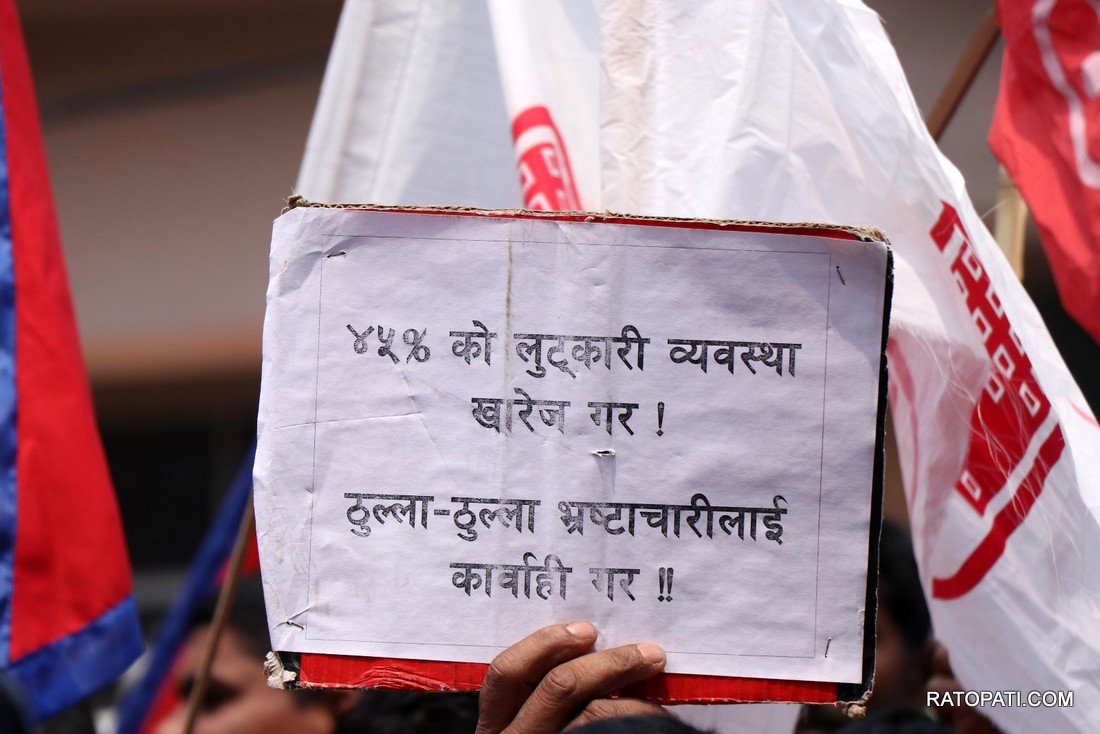 ४५% को लुट्कारी व्यवस्था
खारेज गर !
ठुल्ला-ठुल्ला भ्रष्टाचारीलाई
कार्वाही गर !!
RATOPATI.COM